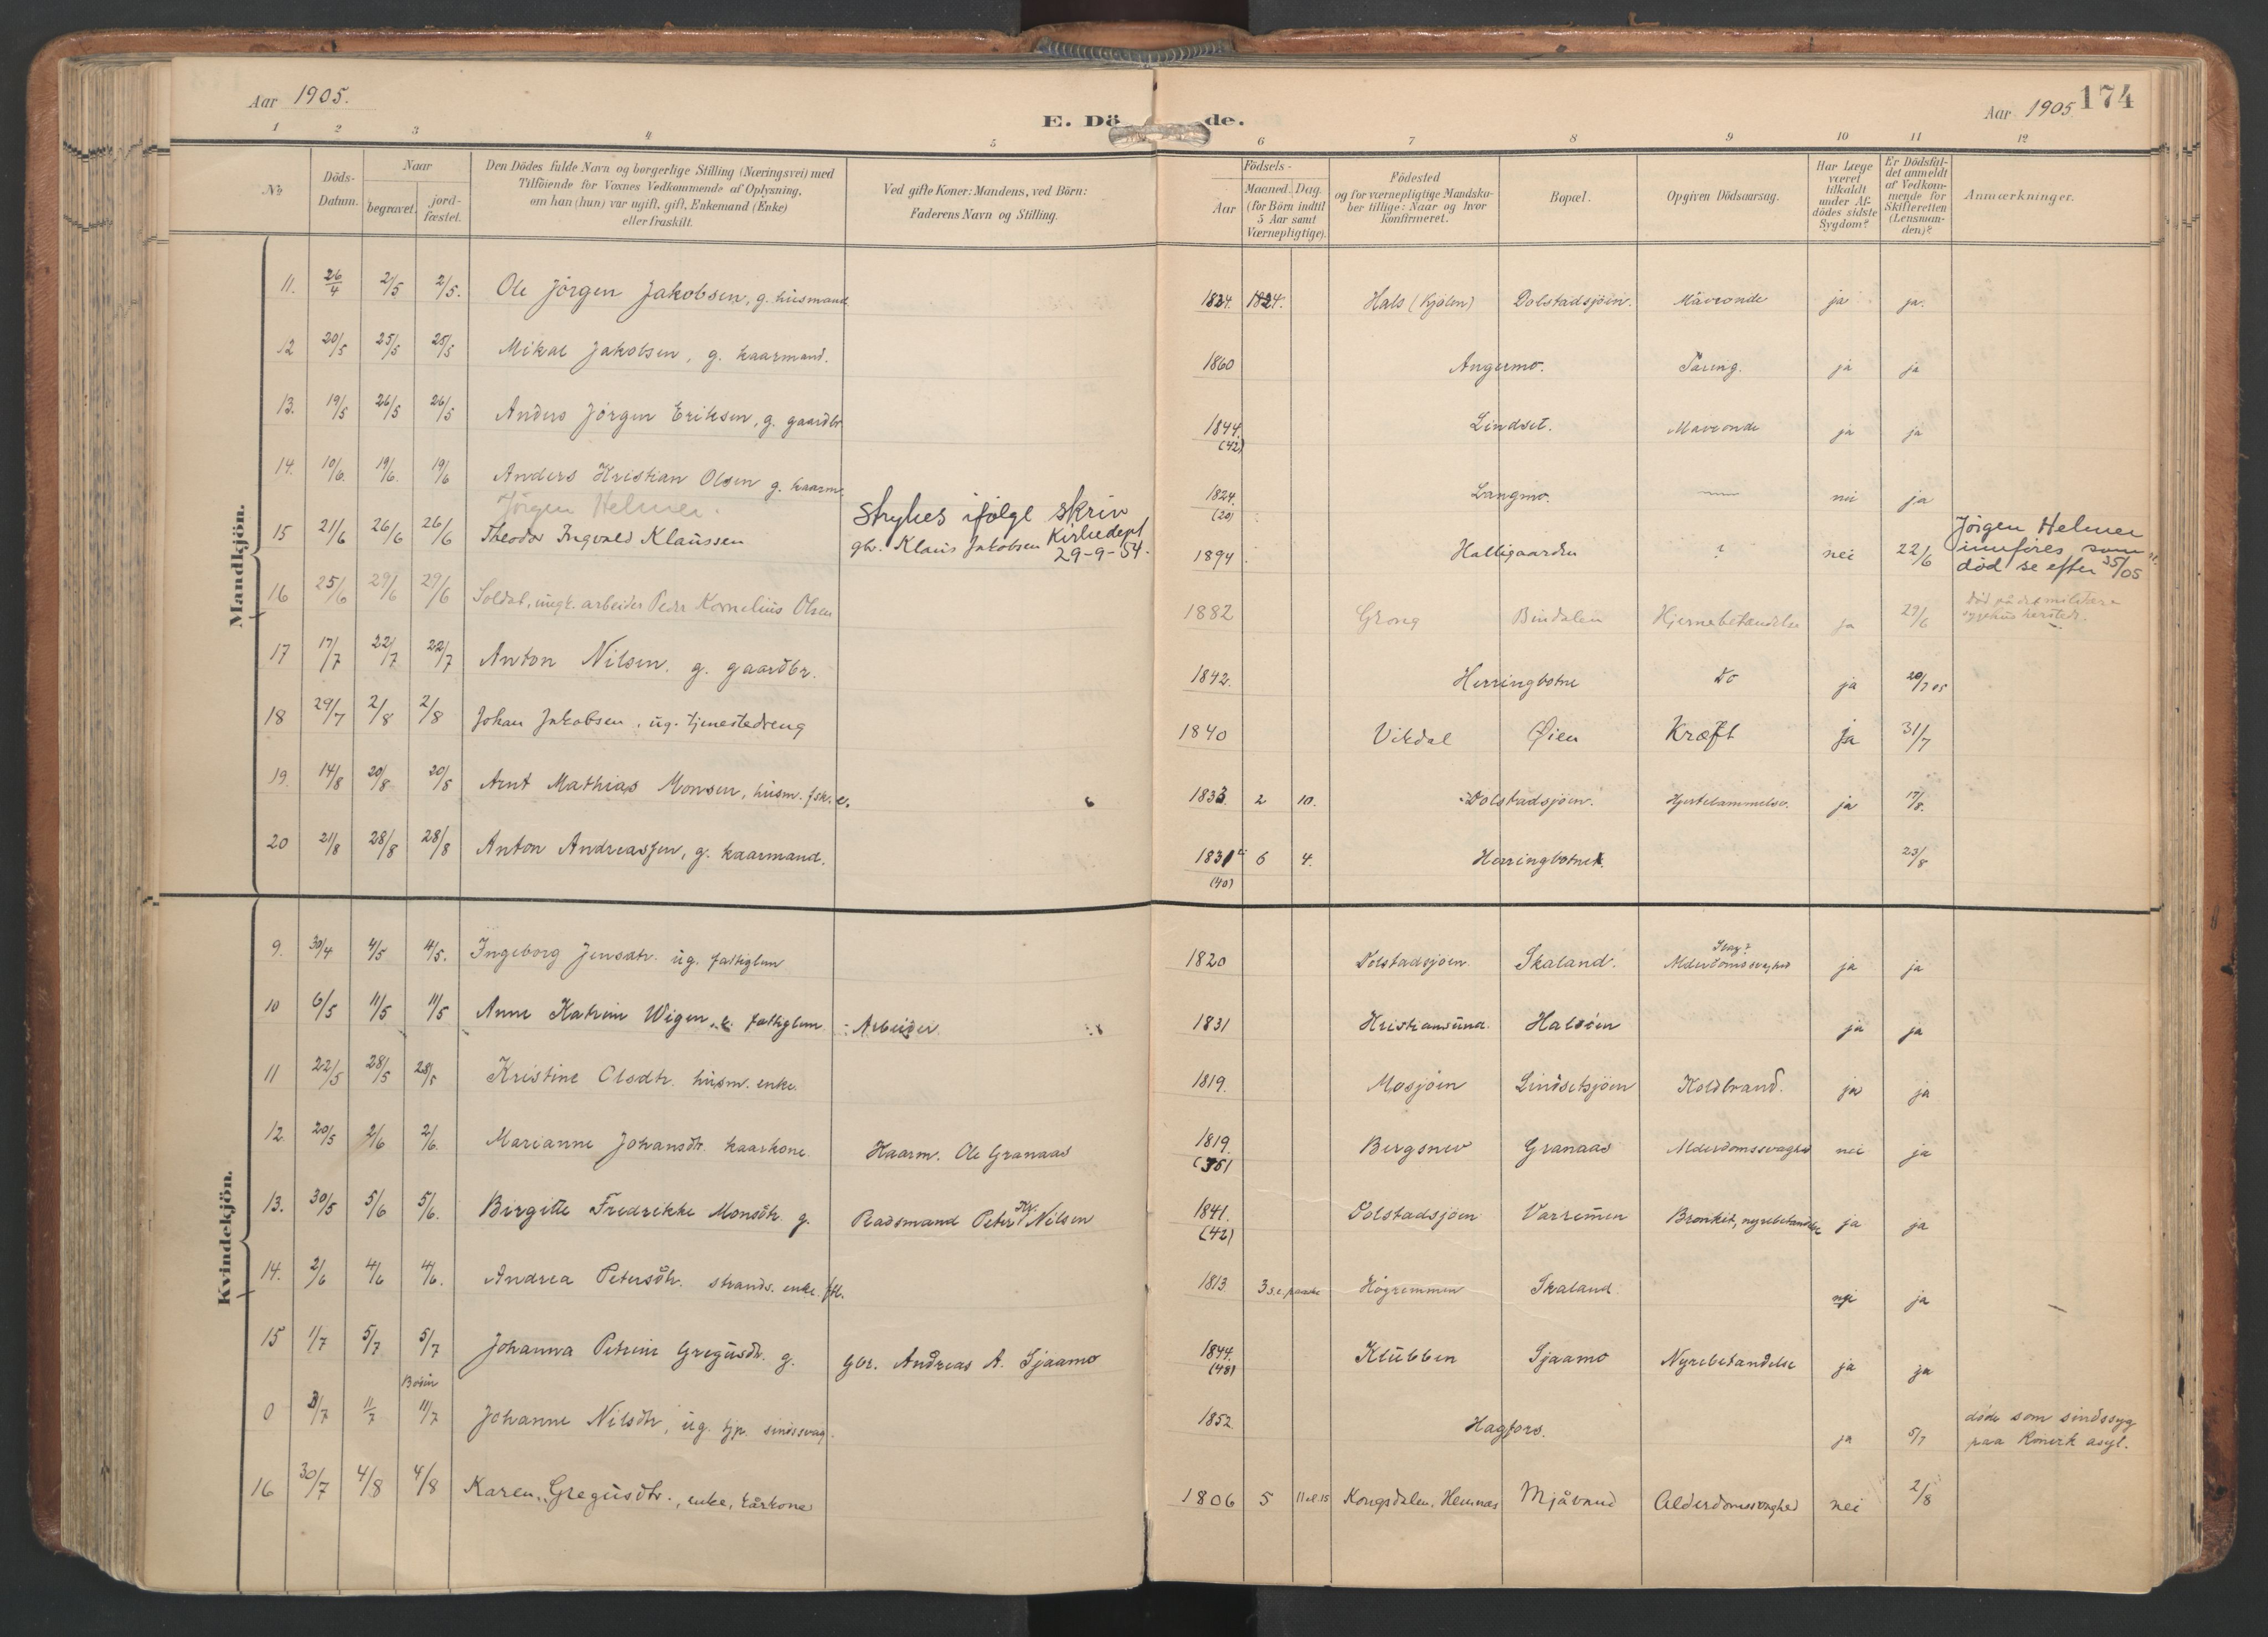 Aar 1905.
E. Dö de.
Aar 1905
174
1 2 3 4 5 6 7 8 9 10 11 12
No
Döds-
Datum.
Naar
begravet.
jord-
fæstet.
Den Dödes fulde Navn og borgerlige Stilling (Næringsvei) med
Tilföiende for Voxnes Vedkommende af Oplysning,
om han (hun) var ugift, gift, Enkemand (Enke)
eller fraskilt.
Ved gifte Koner: Mandens, ved Börn:
Faderens Navn og Stilling.
Födsels-
Aar
Maaned. Dag.
(for Börn indtil
5 Aar samt
Værnepligtige).
Födested
og for værnepligtige Mandska-
ber tillige: Naar og hvor
konfirmeret.
Bopæl.
Opgiven Dödsaarsag.
Har Læge
været
tilkaldt
under Af-
dödes sidste
Sygdom?
Er Dödsfal-
det anmeldt
af Vedkom-
mende for
Skifteretten
(Lensman-
den)?
Anmærkninger.
Mandkjön.
11. 26/4 2/5 2/5. Ole Jörgen Jakobsen, g. husmand 1824. 1824. Hals (Kjölen) Dolstadsjöen. Mavronde ja ja.
12 20/5 25/5 25/5 Mikal Jakobsen, g. kaarmand. 1860 Angermo. Tæring. ja ja
13. 19/5 26/5 26/5 Anders Jörgen Eriksen, g. gaardbr 1844. (42) Lindset. Mavronde ja ja
14. 10/6. 19/6. 19/6 Anders Kristian Olsen g. kaarm. 1824. (20) Langmo. nei ja
Jörgen Helmer.
15 21/6 26/6 26/6 Theodor Ingvald Klaussen gbr. Klaus Jakobsen 1894 Halligaarden ? nei 22/6
Strykes ifølge skriv
Kirkedept
29-9-54.
Jörgen Helmer
innføres som
död se efter 35/05
16 25/6 29/6 29/6 Soldat, ungk. arbeider Peder Kornelius Olsen 1882 Grong Bindalen Hjernebetændelse ja 29/6 död på det militære
sygehus hersteds.
17 17/7 22/7 22/7 Anton Nilsen. g. gaardbr. 1842. Herringbotne Do ja 20/7 05
18 29/7 2/8 2/8 Johan Jakobsen, ug. tjenestedreng 1840 Vikdal Øien Kræft ja 31/7
19. 14/8 20/8 20/8 Arnt Mathias Monsen, husm. fsk. e. 1833. 2 10. Dolstadsjöen. Hjertelammelse. ja 17/8.
20 21/8 28/8 28/8 Anton Andreassen, g. kaarmand. 1831 (40) 6 4. Herringbotnet. 23/8
Kvindekjön.
9. 30/4 4/5 4/5. Ingeborg Jensdtr. ug. fattiglem 1820 Dolstadsjöen. Skaland. Slag?
Alderdomssvaghed ja ja
10 6/5 11/5 11/5 Anne Katrine Wigen, e. fattiglem : Arbeider. 1831 Kristiansund. Halsöen ja ja
11 22/5 28/5 28/5 Kristine Olsdtr. husm. enke. 1819. Mosjöen Lindsetsjöen Koldbrand. ja ja
12. 20/5 2/6 2/6. Marianne Johansdtr. kaarkone. Kaarm. Ole Granaas 1819. (35) Bergsnev Granaas Alderdomssvaghed nei ja
13. 30/5 5/6 5/6. Birgitte Fredrikke Monsdtr. g. Baadsmand Peter Nilsen 1841. (42) Dolstadsjöen Varremen Bronkit, nyrebetændelse ja ja
14. 2/6 4/6 4/6. Andrea Petersdtr. strands. enke. ftl. 1813. 3 s.e. paaske Högremmen Skaland. nei ja
15 1/7 5/7 5/7 Johanna Petrine Gregusdtr. g. Gbr. Andreas A. Sjaamo 1844. (48) Klubben Sjaamo Nyrebetændelse ja ja
0 3/7 11/7 Bodin 11/7 Johanne Nilsdtr, ug. tjp. sindssvag. 1852. Hagfors. ja 5/7 döde som sindssyg
paa Rönvik asyl.
16 30/7 4/8 4/8 Karen Gregusdtr., enke, kårkone 1806 5 11 el. 15 Kongsdalen, Hemnæs Mjåvand Alderdomssvaghed nei 2/8